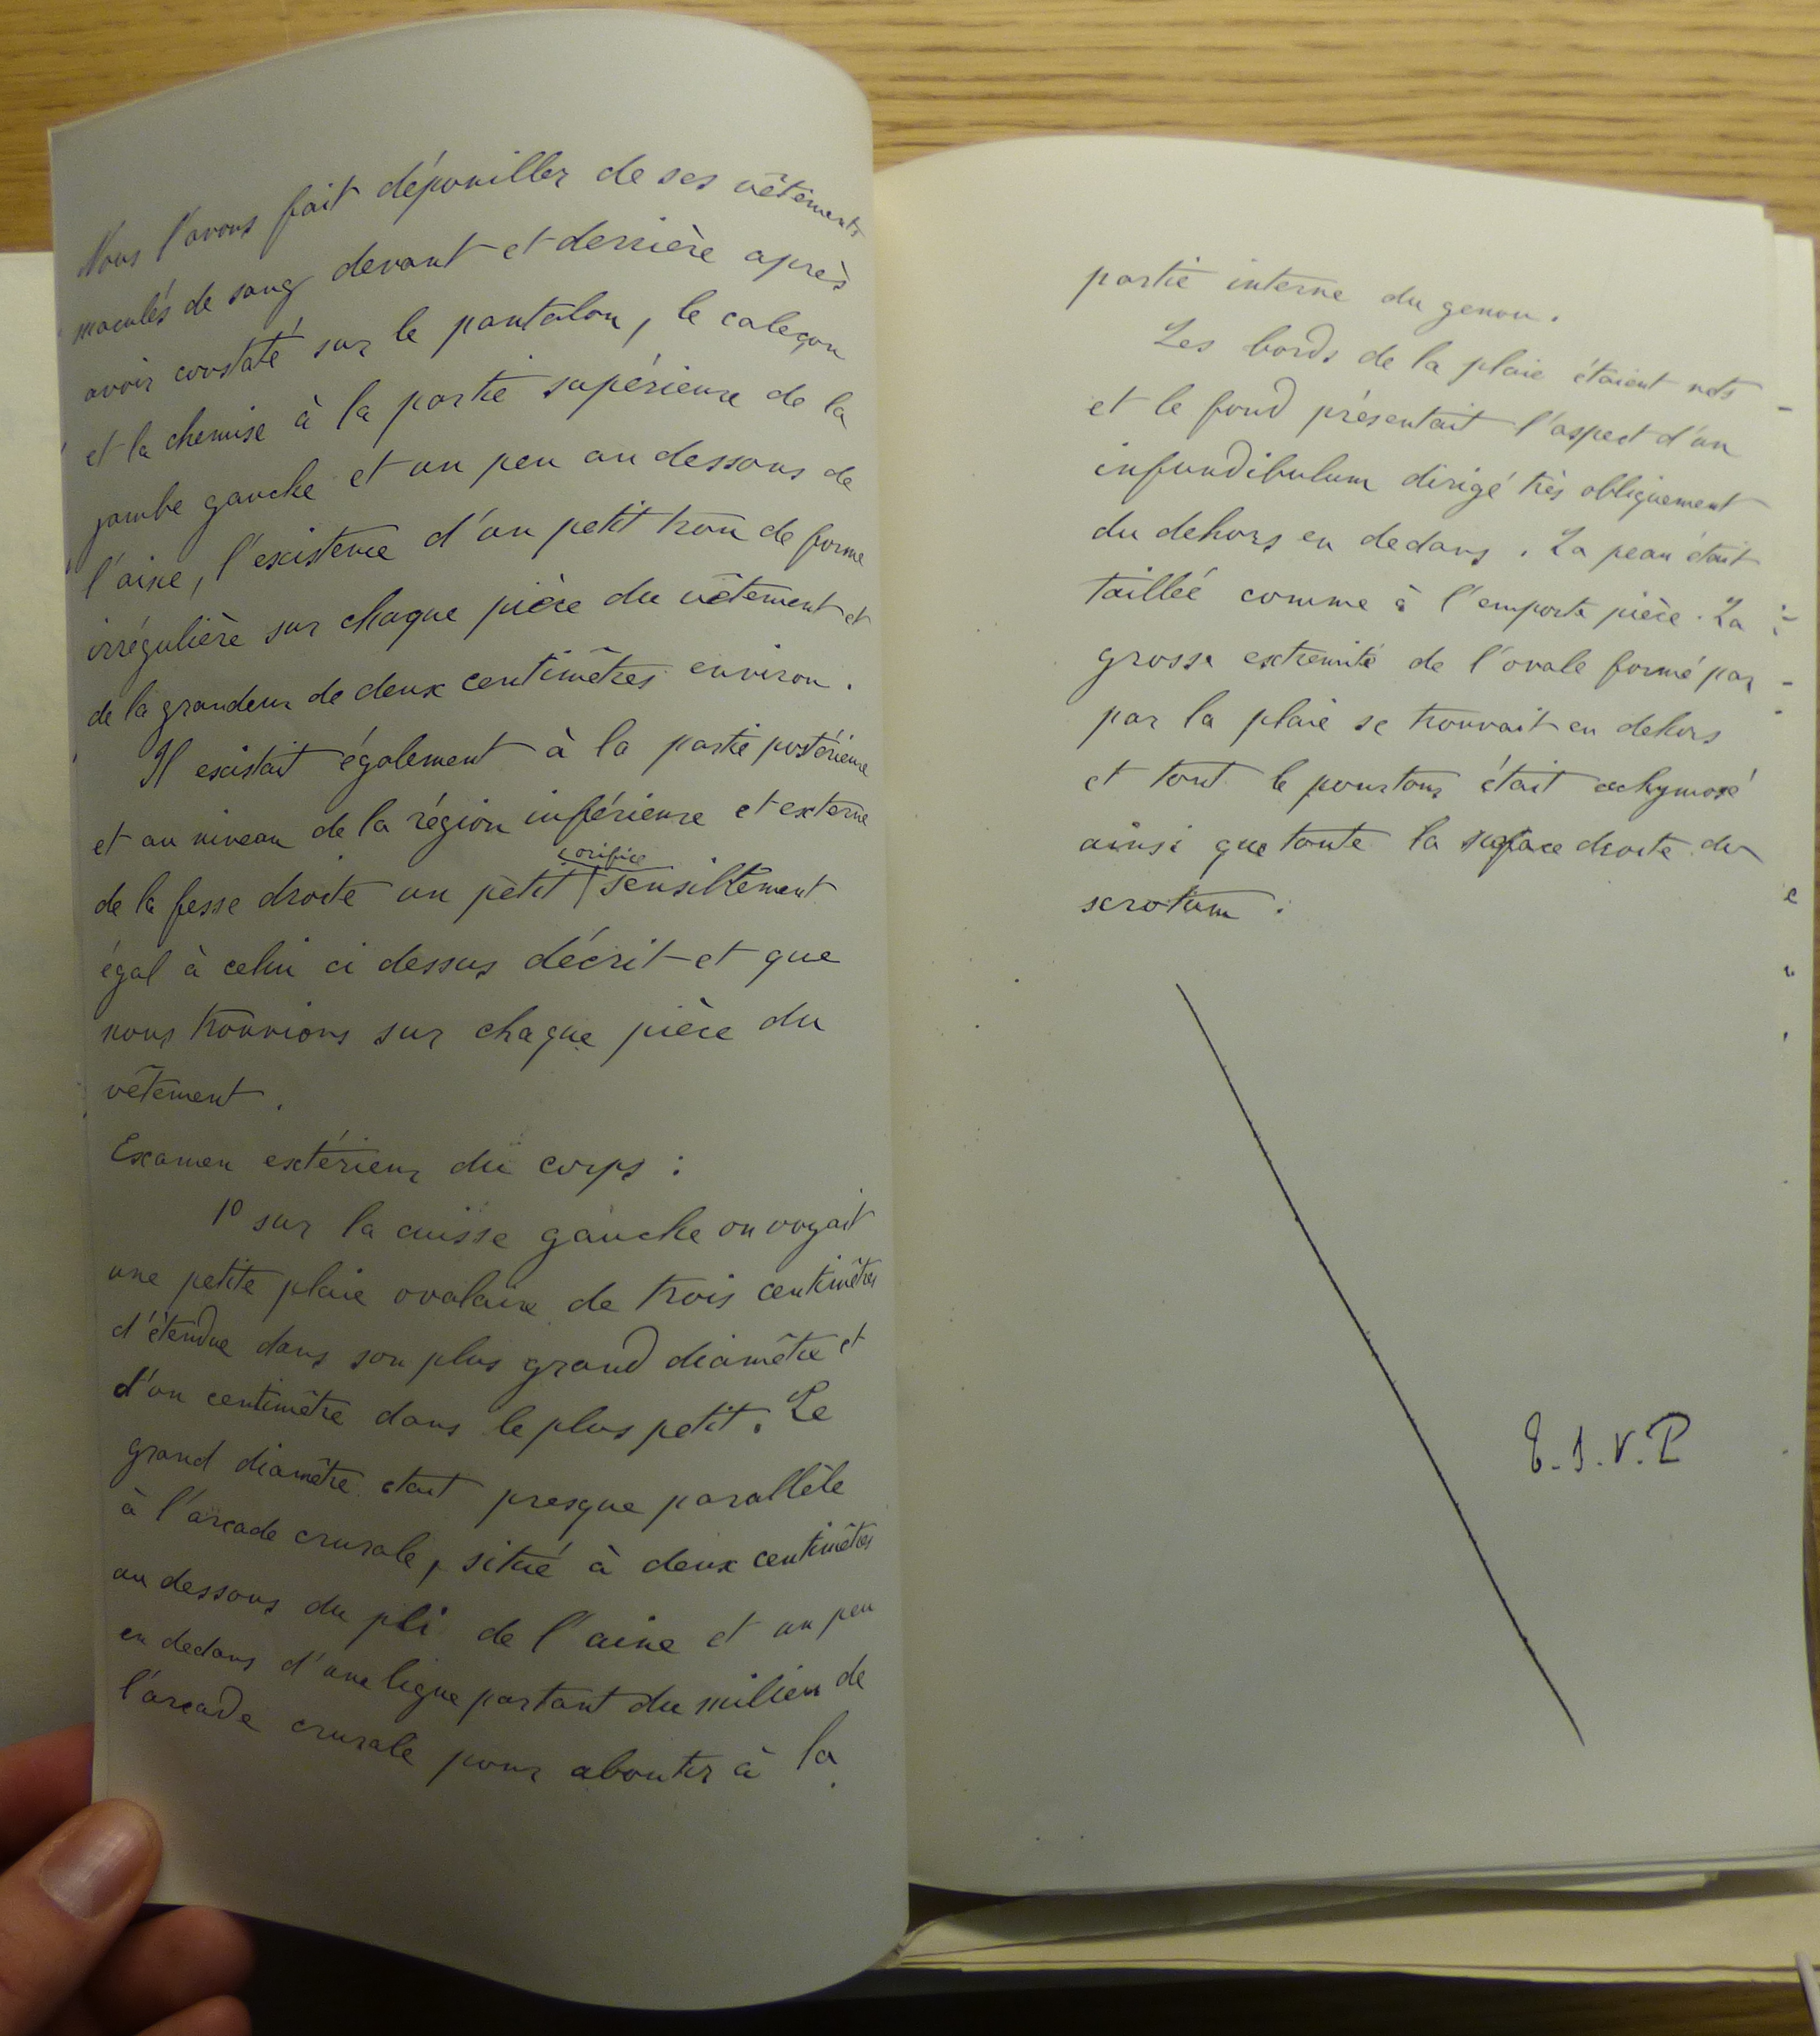 Nous l'avons fait dépouiller de ses vêtements
maculés de sang devant et derrière après
avoir constaté sur le pantalon, le caleçon
et la chemise à la partie supérieure de la
jambe gauche et un peu au dessous de
l'aine, l'existence d'un petit trou de forme
irrégulière sur chaque pièce du vêtement et
de la grandeur de deux centimètres environ.
Il existait également à la partie postérieure
et au niveau de la région inférieure et externe
orifice
de la fesse droite un petit sensiblement
égal à celui ci dessus décrit et que
nous trouvions sur chaque pièce du
vêtement.
Examen extérieur du corps :
1º sur la cuisse gauche on voyait
une petite plaie ovalaire de trois centimètres
d'étendue dans son plus grand diamètre et
d'un centimètre dans le plus petit. Le
grand diamètre étant presque parallèle
à l'arcade crurale, situé à deux centimètres
au dessous du pli de l'aine et un peu
en dedans d'une ligne partant du milieu de
l'arcade crurale pour aboutir à la
partie interne du genou.
Les bords de la plaie étaient nets
et le fond présentait l'aspect d'un
infundibulum dirigé très obliquement
du dehors en dedans. La peau était
taillée comme à l'emporte pièce. La
grosse extrémité de l'ovale formé par
par la plaie se trouvait en dehors
et tout le pourtour était ecchymosé
ainsi que toute la surface droite du
scrotum.
T.S.V.P